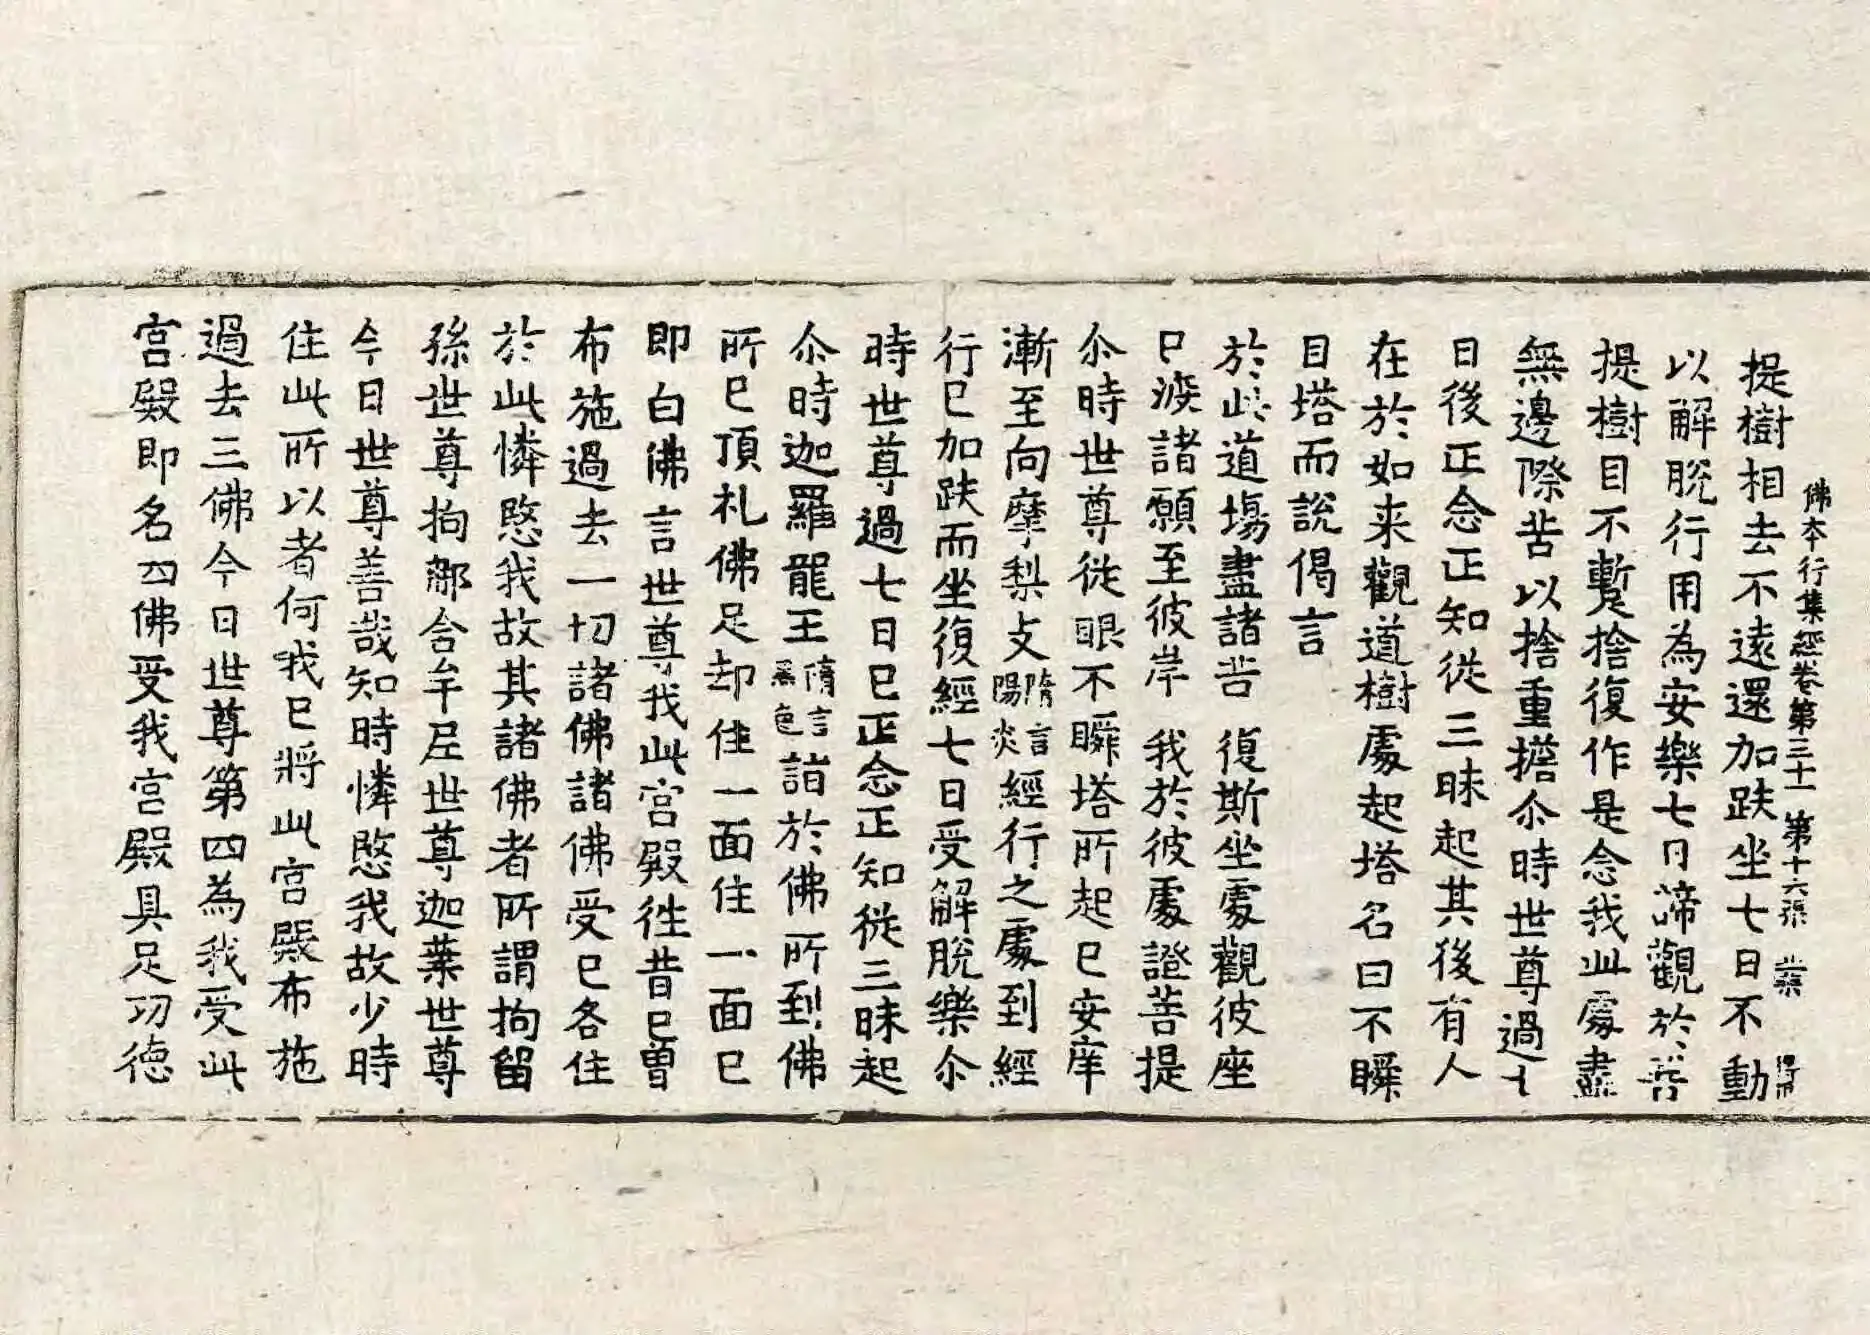 佛本行集經卷第三十一 第十六張
提樹相去不遠還加趺坐七日不動
以解脫行用為安樂七日諦觀於菩
提樹目不暫捨復作是念我此處盡
無邊際苦以捨重擔尒時世尊過七
日後正念正知從三昧起其後有人
在於如来觀道樹處起塔名曰不瞬
目塔而說偈言
於此道場盡諸苦 復斯坐處觀彼座
已渡諸願至彼岸 我於彼處證菩提
尒時世尊從眼不瞬塔所起已安庠
漸至向摩梨支隋言陽炎經行之處到經
行已加趺而坐復經七日受解脫樂尒
時世尊過七日已正念正知從三昧起
尒時迦羅龍王隋言黑色詣於佛所到佛
所已頂礼佛足却住一面住一面已
即白佛言世尊我此宮殿往昔已曾
布施過去一切諸佛諸佛受已各住
於此憐愍我故其諸佛者所謂拘留
孫世尊拘那含牟尼世尊迦葉世尊
今日世尊善哉知時憐愍我故少時
住此所以者何我已將此宮殿布施
過去三佛今日世尊第四為我受此
宮殿即名四佛受我宮殿具足功德